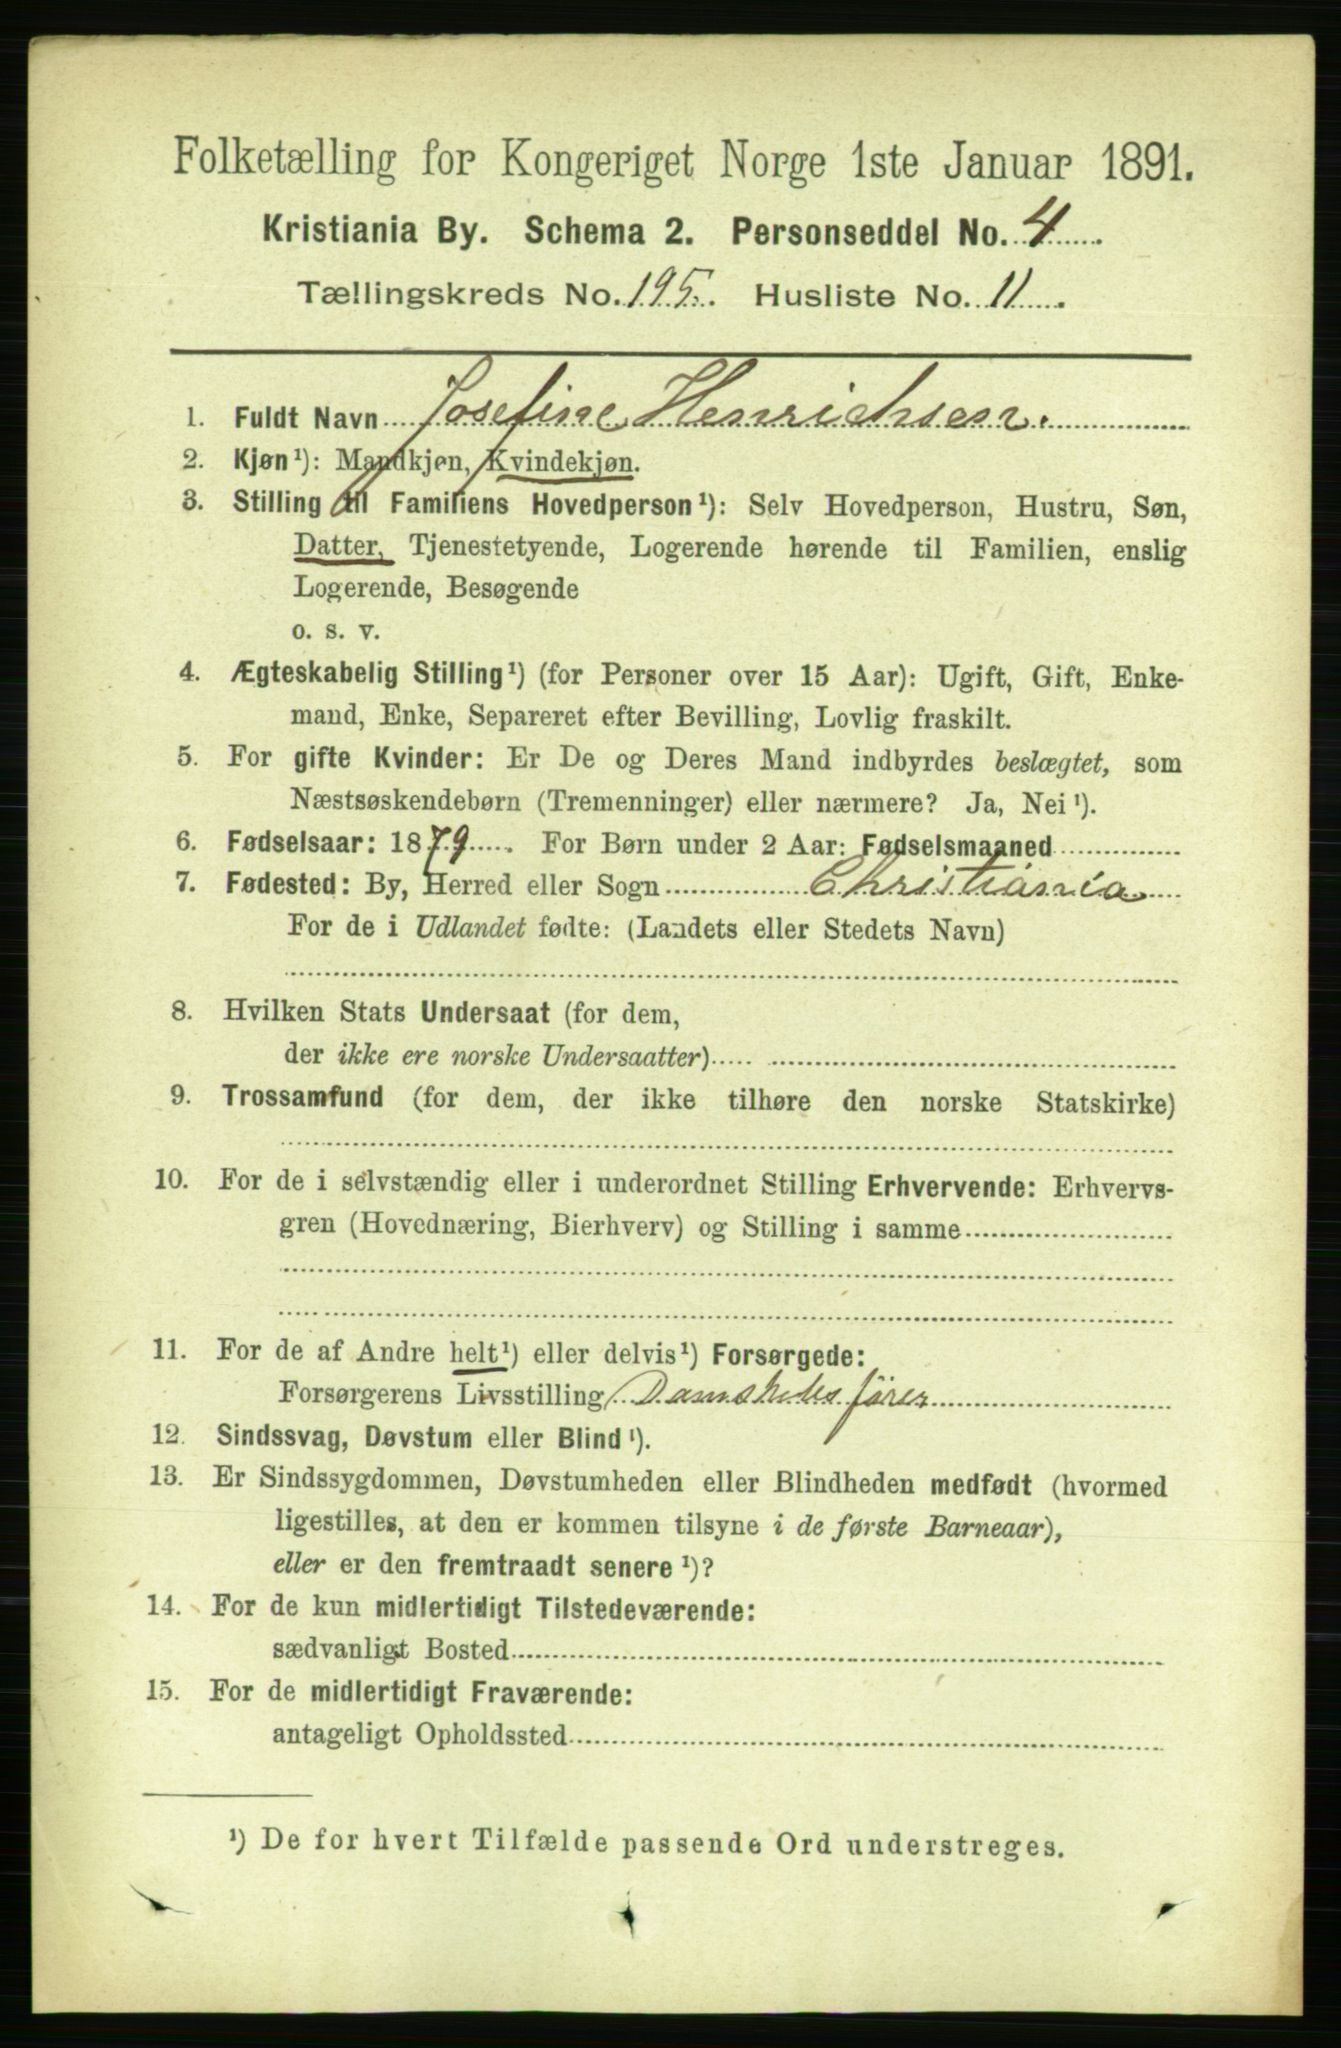 Folketælling for Kongeriget Norge 1ste Januar 1891.
Kristiania By. Schema 2. Personseddel No. 4
Tællingskreds No. 195. Husliste No. 11
1. Fuldt Navn Josefine Henrichsen.
2. Kjøn¹): Mandkjøn, Kvindekjøn.
3. Stilling til Familiens Hovedperson¹): Selv Hovedperson, Hustru, Søn,
Datter, Tjenestetyende, Logerende hørende til Familien, enslig
Logerende, Besøgende
o. s. v.
4. Ægteskabelig Stilling¹) (for Personer over 15 Aar): Ugift, Gift, Enke-
mand, Enke, Separeret efter Bevilling, Lovlig fraskilt.
5. For gifte Kvinder: Er De og Deres Mand indbyrdes beslægtet, som
Næstsøskendebørn (Tremenninger) eller nærmere? Ja, Nei¹).
6. Fødselsaar: 1879. For Børn under 2 Aar: Fødselsmaaned
7. Fødested: By, Herred eller Sogn Christiania
For de i Udlandet fødte: (Landets eller Stedets Navn)
8. Hvilken Stats Undersaat (for dem,
der ikke ere norske Undersaatter)
9. Trossamfund (for dem, der ikke tilhøre den norske Statskirke)
10. For de i selvstændig eller i underordnet Stilling Erhvervende: Erhvervs-
gren (Hovednæring, Bierhverv) og Stilling i samme
11. For de af Andre helt¹) eller delvis¹) Forsørgede:
Forsørgerens Livsstilling Damskibsfører
12. Sindssvag, Døvstum eller Blind¹).
13. Er Sindssygdommen, Døvstumheden eller Blindheden medfødt (hvormed
ligestilles, at den er kommen tilsyne i de første Barneaar),
eller er den fremtraadt senere¹)?
14. For de kun midlertidigt Tilstedeværende:
sædvanligt Bosted
15. For de midlertidigt Fraværende:
antageligt Opholdssted
¹) De for hvert Tilfælde passende Ord understreges.